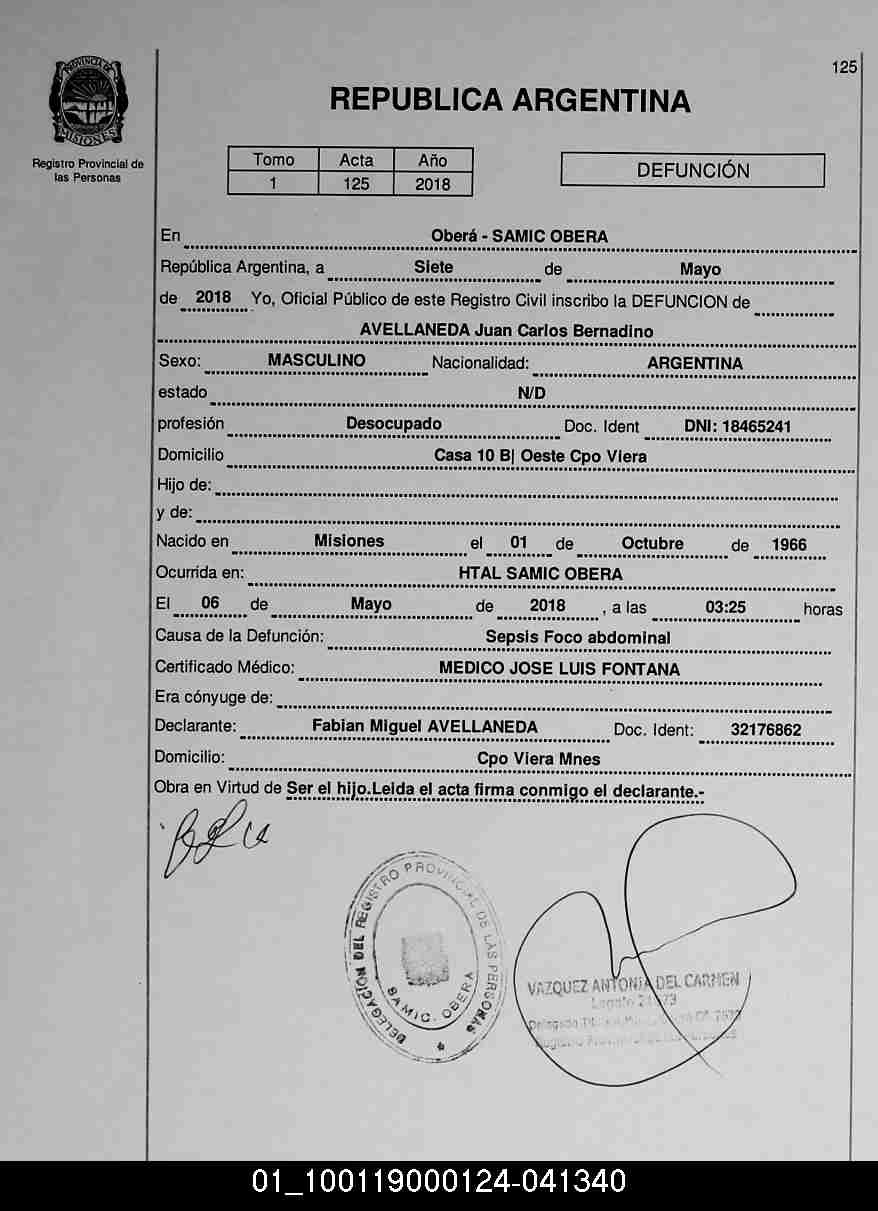 125
PROVINCIA DE
MISIONES
Registro Provincial de
las Personas
REPUBLICA ARGENTINA
Tomo Acta Año
1 125 2018
DEFUNCIÓN
En Oberá - SAMIC OBERA
República Argentina, a Siete de Mayo
de 2018 Yo, Oficial Público de este Registro Civil inscribo la DEFUNCION de
AVELLANEDA Juan Carlos Bernadino
Sexo: MASCULINO Nacionalidad: ARGENTINA
estado N/D
profesión Desocupado Doc. Ident DNI: 18465241
Domicilio Casa 10 B| Oeste Cpo Viera
Hijo de:
y de:
Nacido en Misiones el 01 de Octubre de 1966
Ocurrida en: HTAL SAMIC OBERA
El 06 de Mayo de 2018 , a las 03:25 horas
Causa de la Defunción: Sepsis Foco abdominal
Certificado Médico: MEDICO JOSE LUIS FONTANA
Era cónyuge de:
Declarante: Fabian Miguel AVELLANEDA Doc. Ident: 32176862
Domicilio: Cpo Viera Mnes
Obra en Virtud de Ser el hijo.Leida el acta firma conmigo el declarante.-
DELEGACIÓN DEL REGISTRO PROVINCIAL DE LAS PERSONAS
SAMIC. OBERA
VAZQUEZ ANTONIA DEL CARMEN
01_100119000124-041340